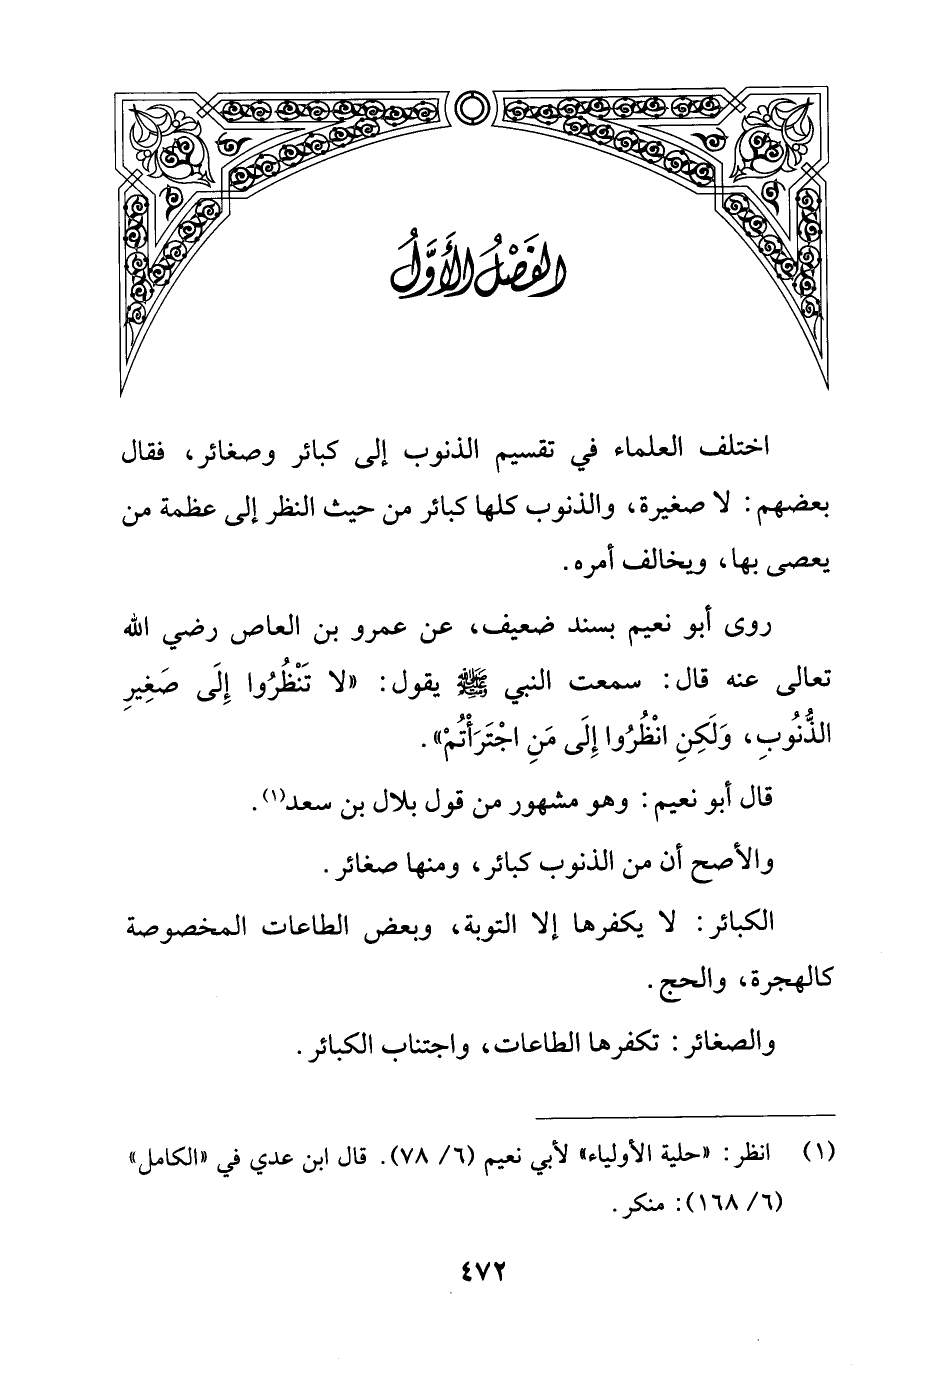 الفَصْلُ الأَوَّلُ
اختلف العلماء في تقسيم الذنوب إلى كبائر وصغائر، فقال
بعضهم: لا صغيرة، والذنوب كلها كبائر من حيث النظر إلى عظمة من
يعصى بها، ويخالف أمره.
روى أبو نعيم بسند ضعيف، عن عمرو بن العاص رضي الله
تعالى عنه قال: سمعت النبي ﷺ يقول: «لا تَنْظُرُوا إِلَى صَغِيرِ
الذُّنُوبِ، وَلَكِنِ انْظُرُوا إِلَى مَنِ اجْتَرَأْتُمْ».
قال أبو نعيم: وهو مشهور من قول بلال بن سعد(١).
والأصح أن من الذنوب كبائر، ومنها صغائر.
الكبائر: لا يكفرها إلا التوبة، وبعض الطاعات المخصوصة
كالهجرة، والحج.
والصغائر: تكفرها الطاعات، واجتناب الكبائر.
(١) انظر: «حلية الأولياء» لأبي نعيم (٦/ ٧٨). قال ابن عدي في «الكامل»
(٦/ ١٦٨): منكر.
٤٧٢